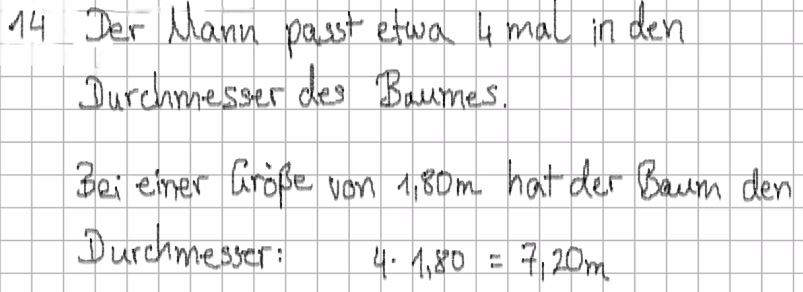 14 Der Mann passt etwa 4 mal in den
Durchmesser des Baumes.
Bei einer Größe von 1,80m hat der Baum den
Durchmesser: 4 · 1,80 = 7,20m